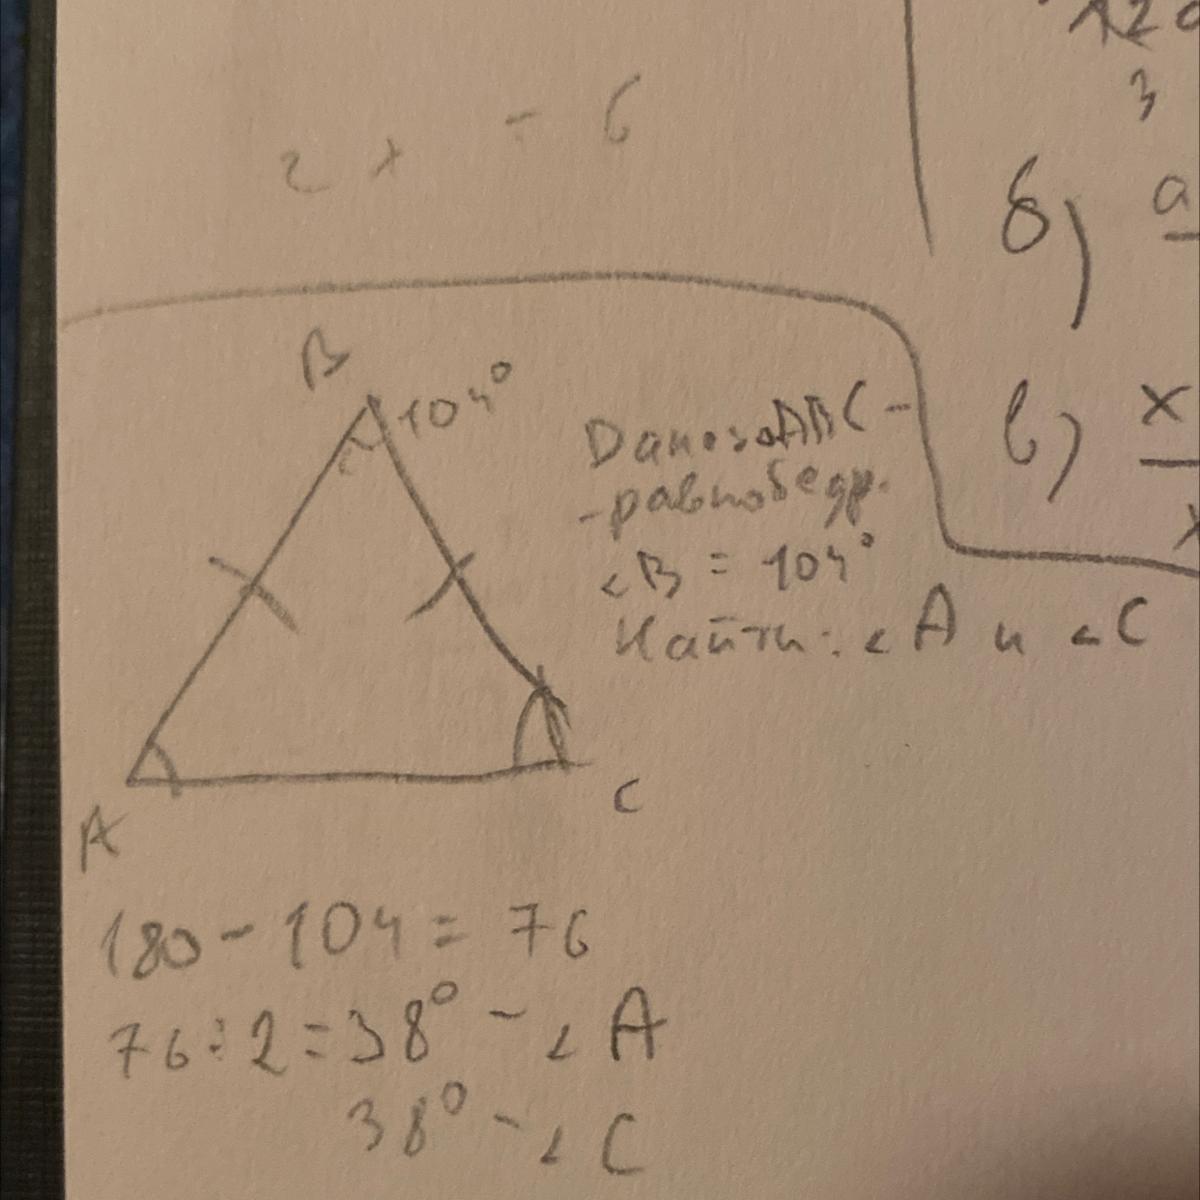 2x = 6
120
3
б) a
в) x
x
B
104°
Дано: △ABC -
- равнобедр.
∠B = 104°
Найти: ∠A и ∠C
A
C
180 - 104 = 76
76 : 2 = 38° - ∠A
38° - ∠C